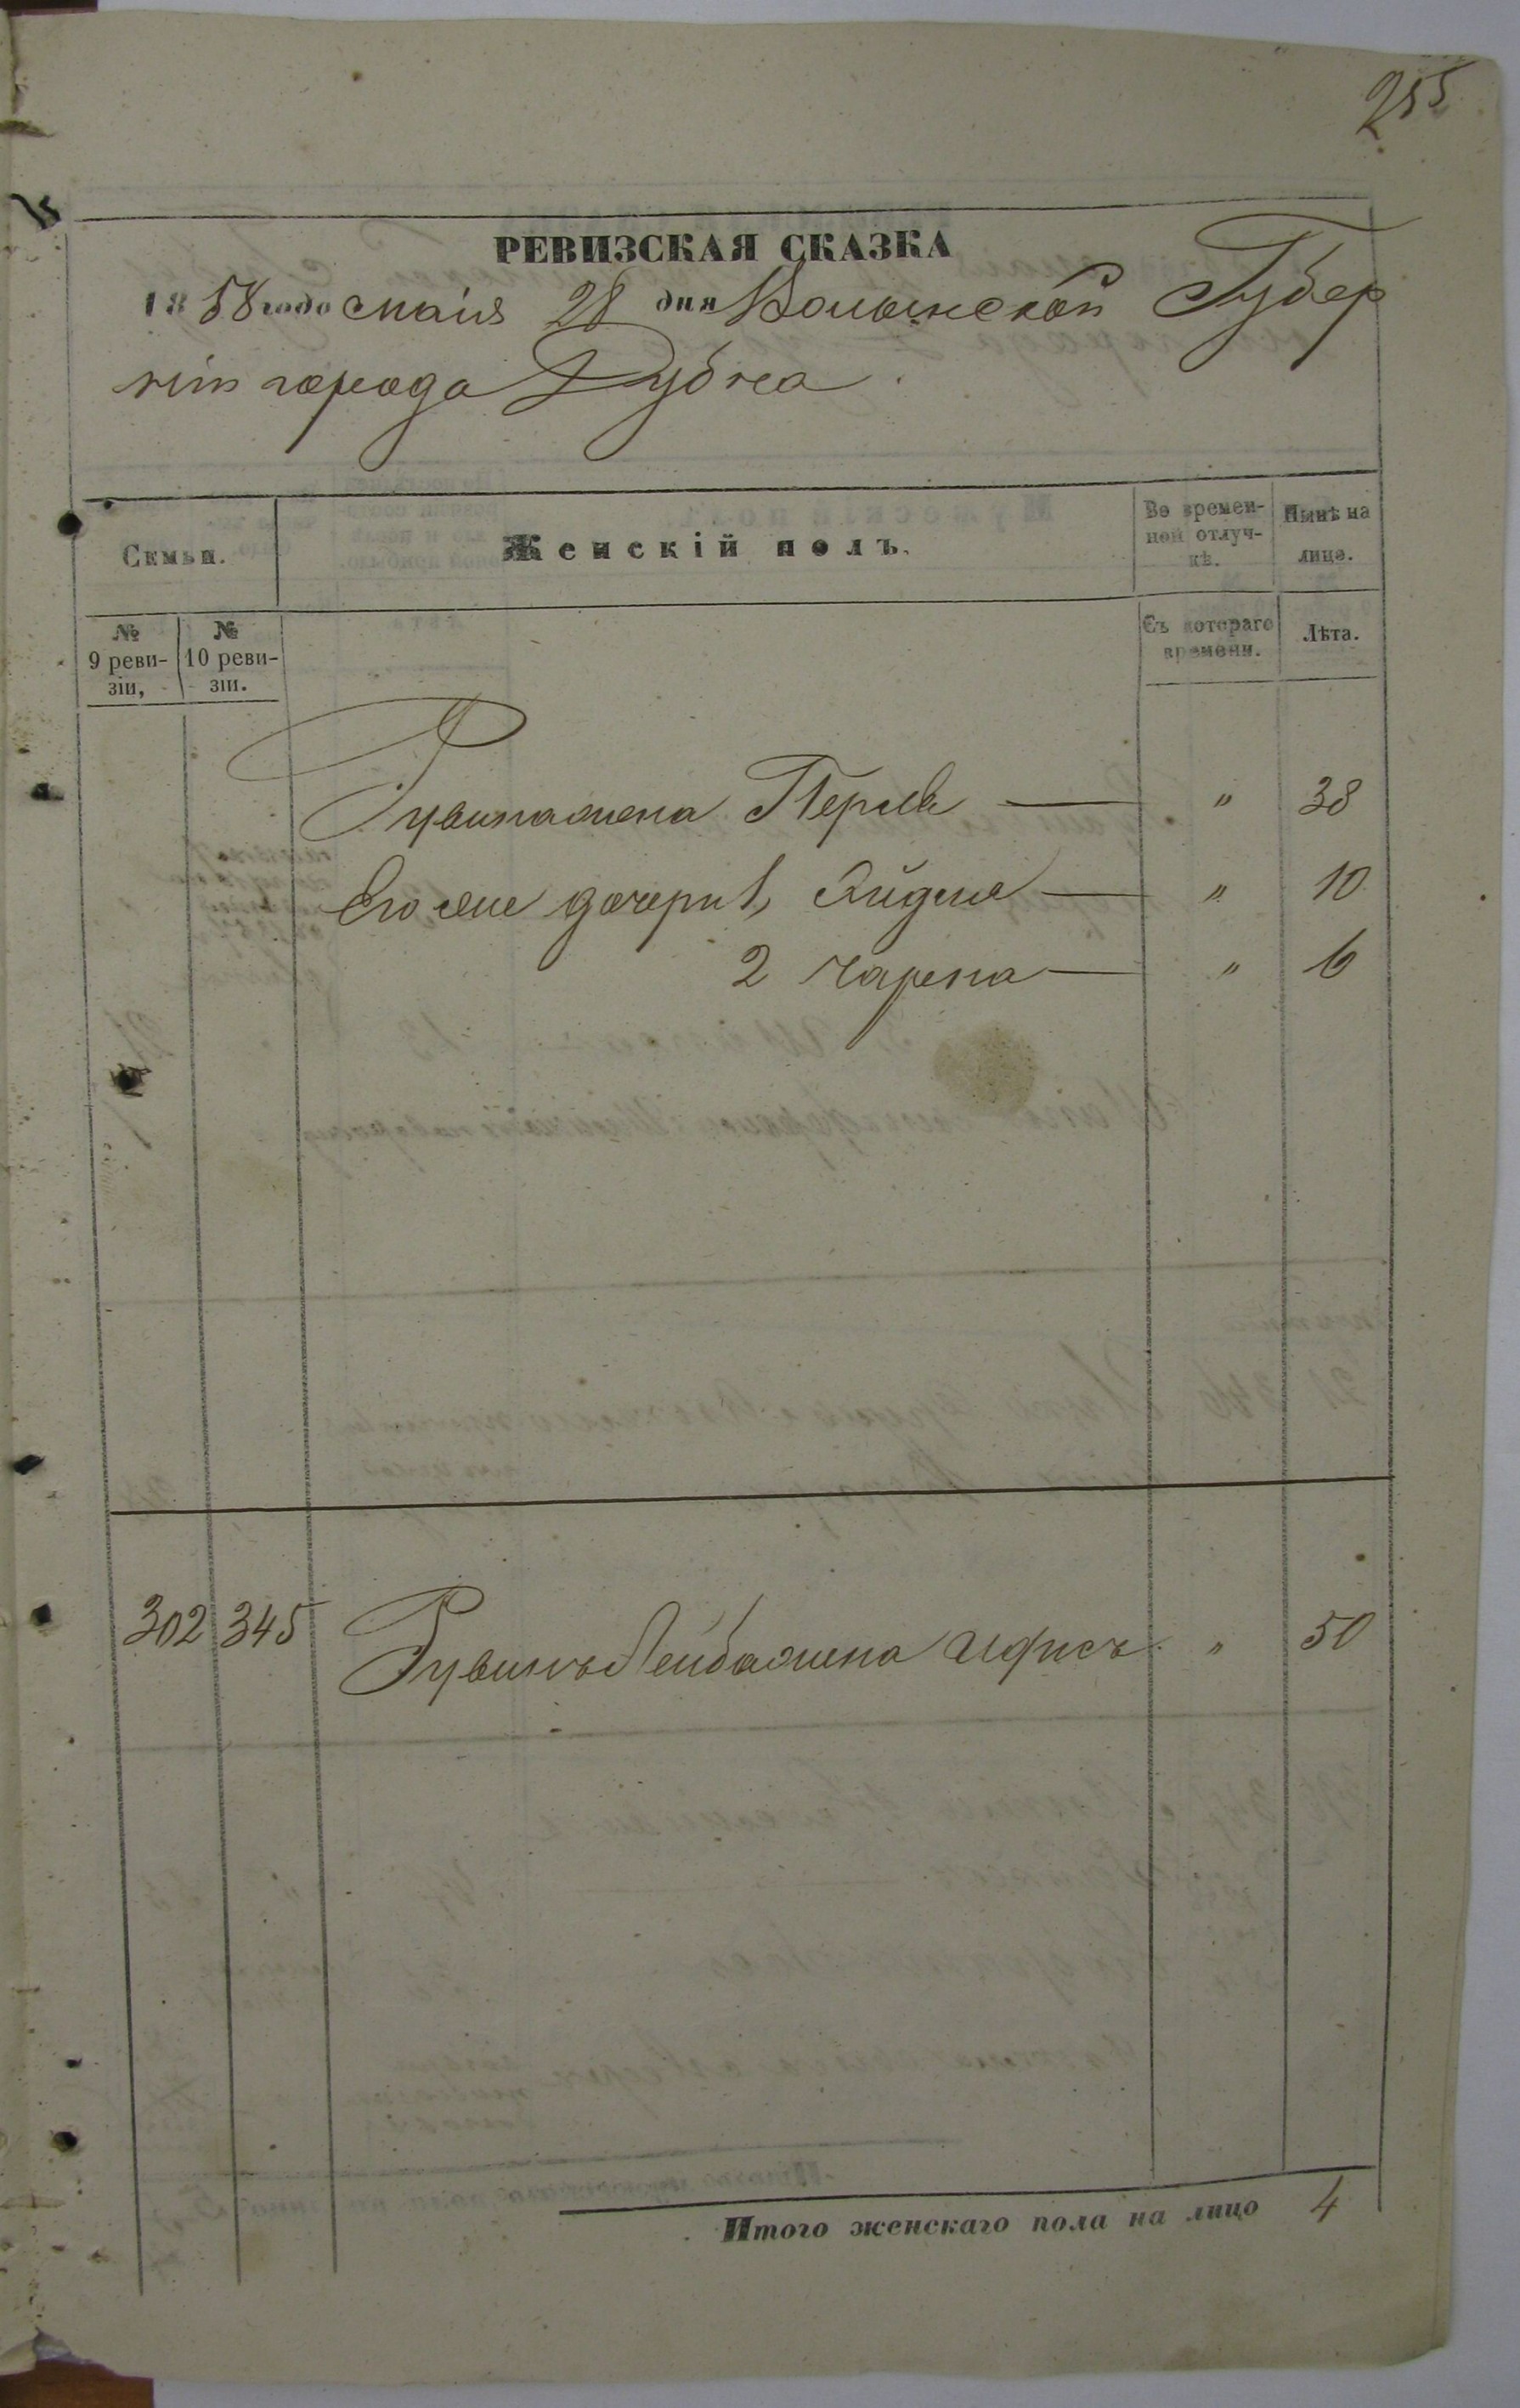 255
РЕВИЗСКАЯ СКАЗКА
1858 года маія 28 дня Волынской Губер
ніи города Дубна.
Семьи.
Женскій полъ.
Во времен-
ной отлуч-
кѣ.
Нынѣ на
лицо.
№
9 реви-
зіи,
№
10 реви-
зіи.
Съ котораго
времени.
Лѣта.
Рувина жена Перля — " 38
Его же дочери 1, Эйдля — " 10
2 Чарна — " 6
302 345 Рувинъ Лейба жена " 50
Итого женскаго пола на лицо 4